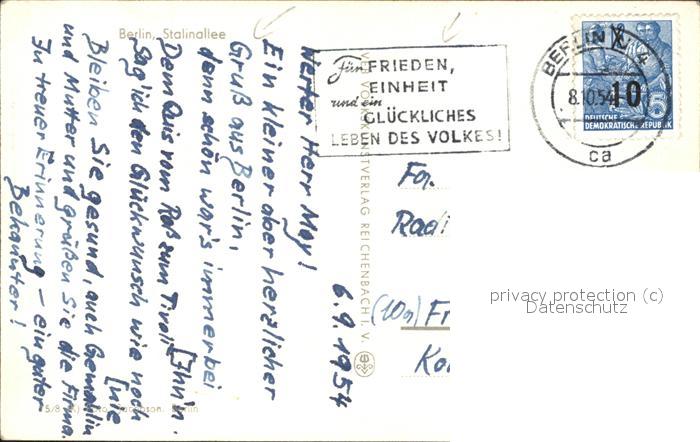 Berlin, Stalinallee
Werter Herr May!
Ein kleiner aber herzlicher
Gruß aus Berlin,
denn schön war's immer bei
[Ihn'n.
Dem Quis vom Roß zum Tirol
Sag ich den Glückwunsch wie noch
[nie
Bleiben Sie gesund, auch Gemahlin
und Mutter und grüßen Sie die Firma.
In treuer Erinnerung – ein guter
Bekannter!
6.9.1954
VEB VOLKSKUNSTVERLAG REICHENBACH I. V.
Für FRIEDEN,
EINHEIT
und ein
GLÜCKLICHES
LEBEN DES VOLKES!
BERLIN 4
8.10.54
ca
10
DEUTSCHE
DEMOKRATISCHE REPUBLIK
Fa.
Radi
(10a) Fr
Ko
privacy protection (c)
Datenschutz
Berlin